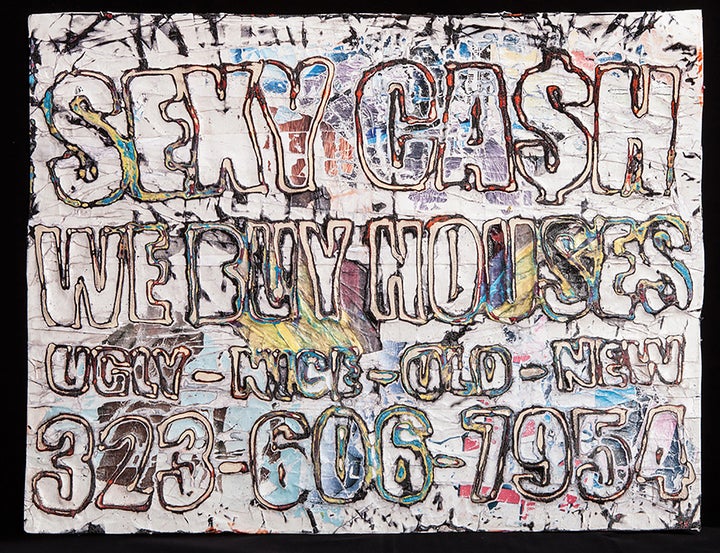 SEXY CA$H
WE BUY HOUSES
UGLY - NICE - OLD - NEW
323-606-7954